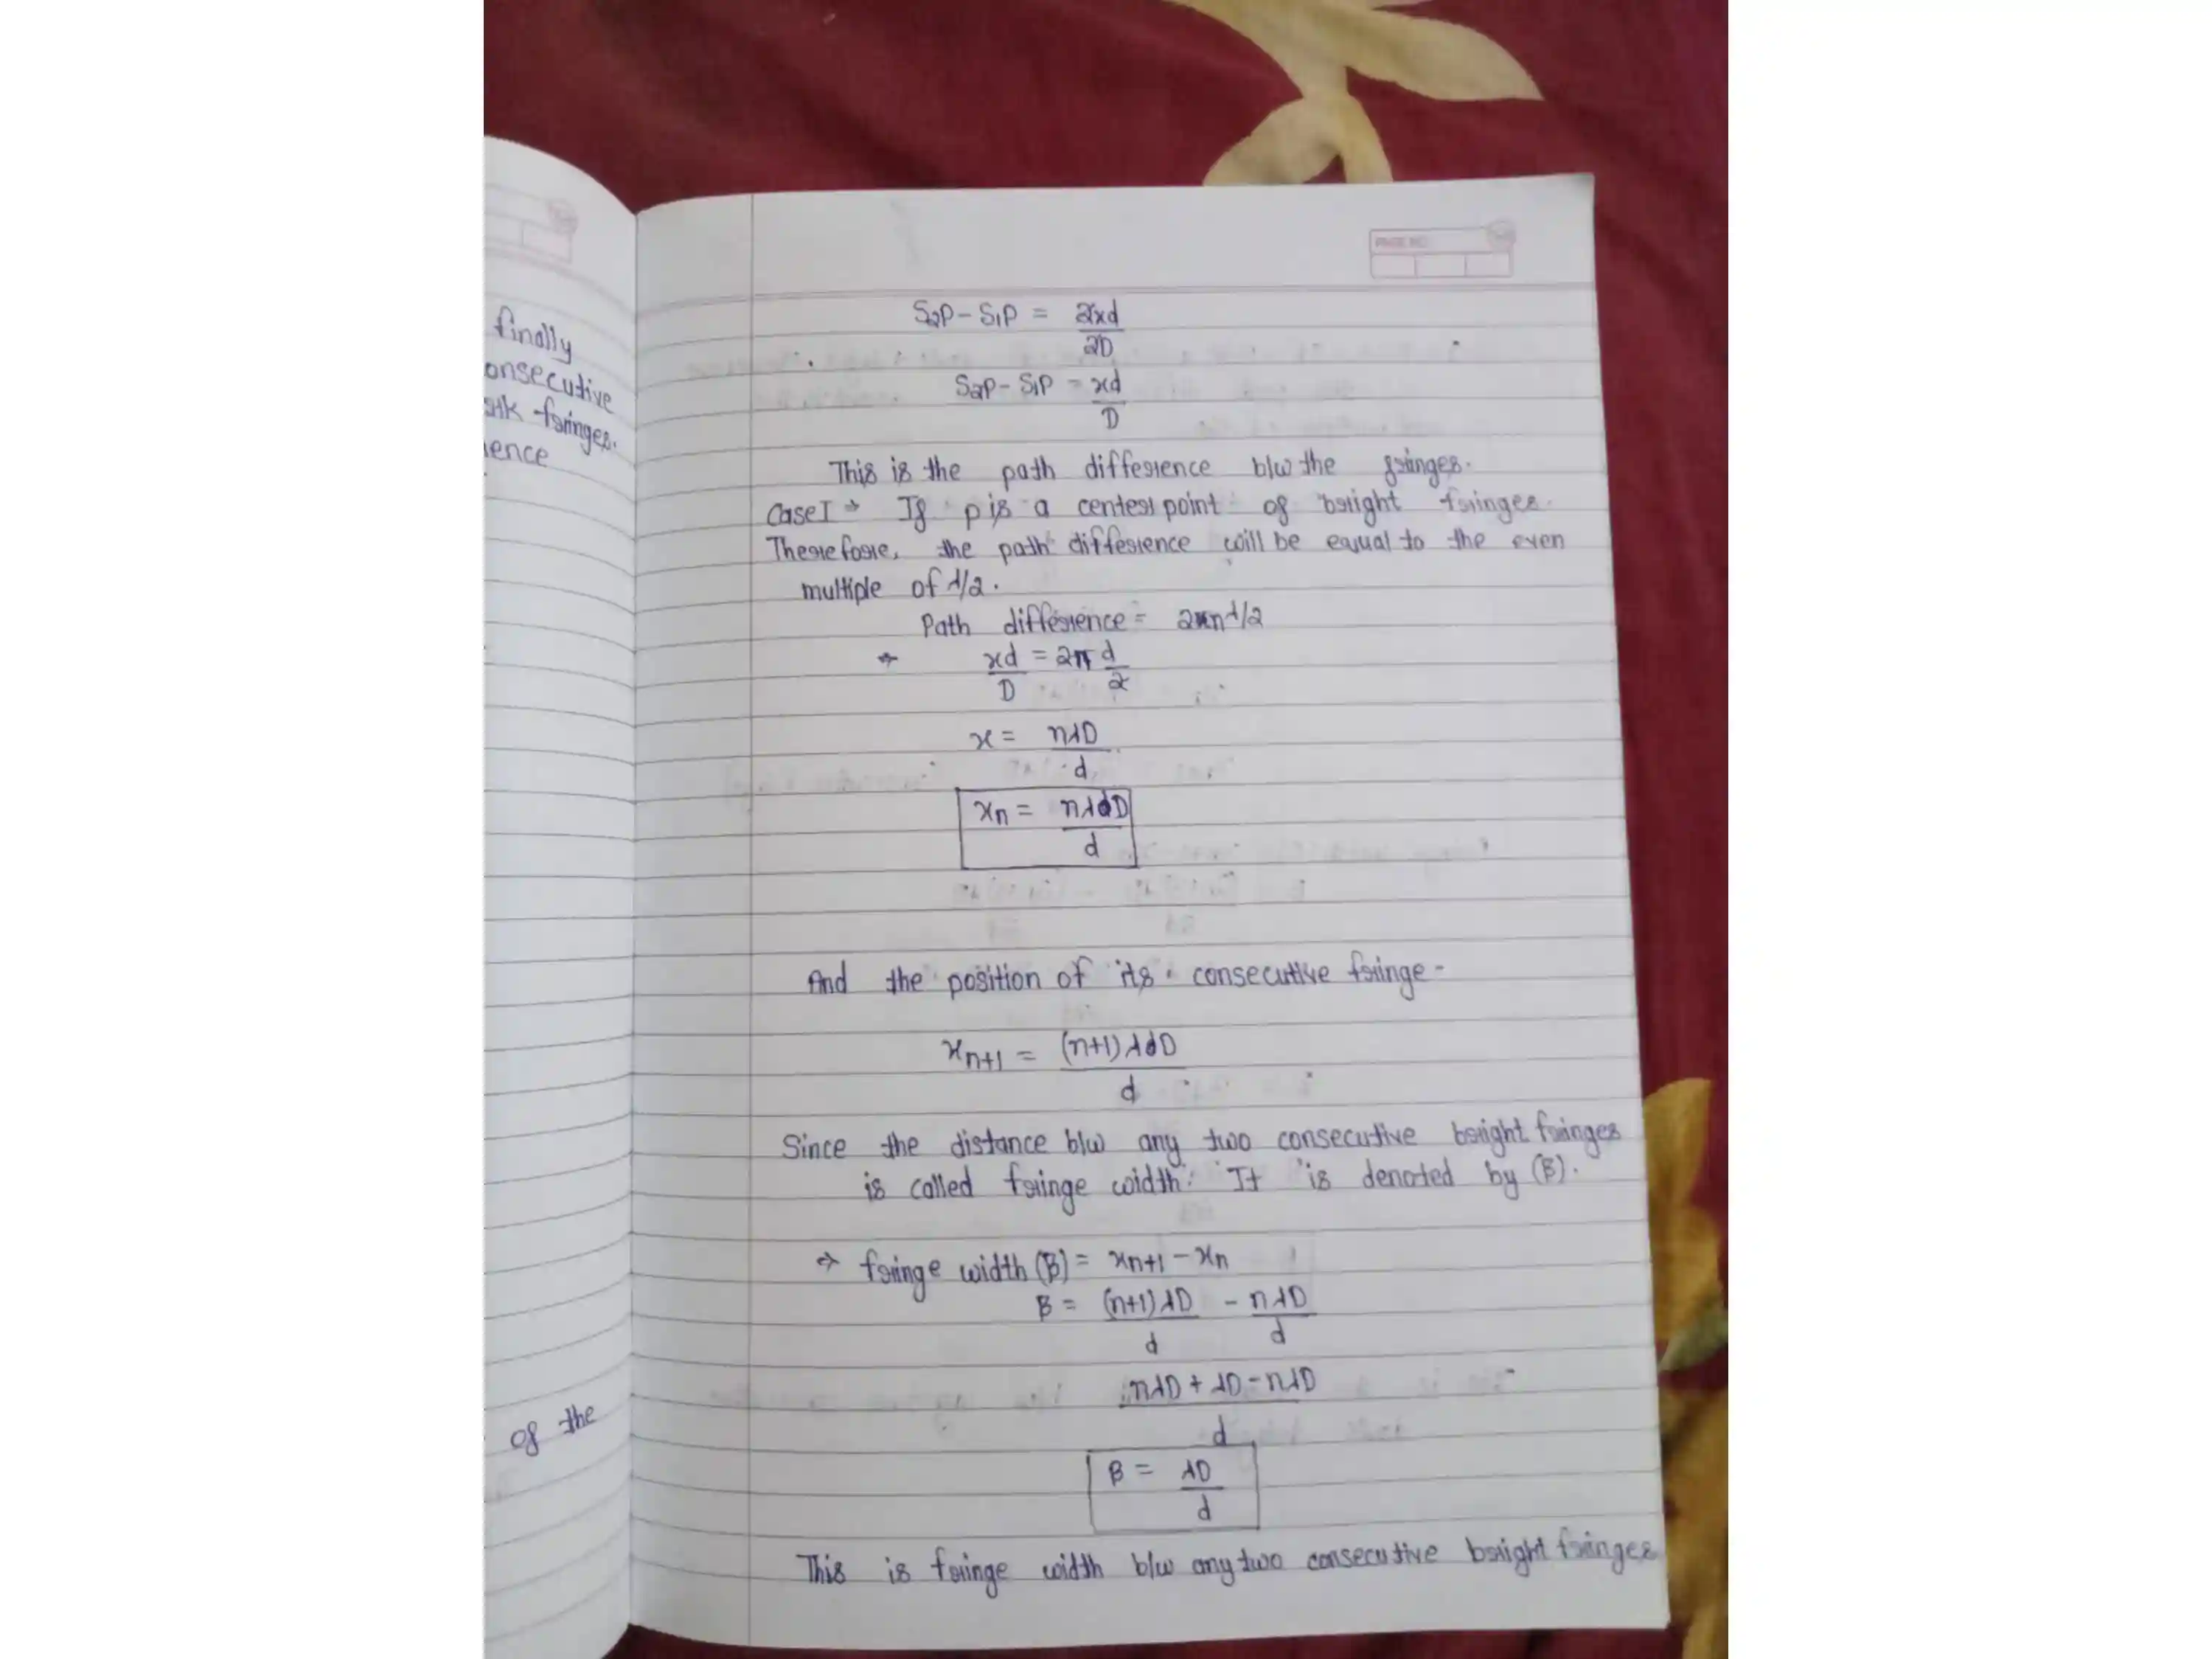 finally
onsecutive
fringes.
ience
of the
PAGE NO.
S₂P - S₁P = 2xd
2D
S₂P - S₁P = xd
D
This is the path difference b/w the fringes.
Case I → If p is a center point of bright fringes.
Therefore, the path difference will be equal to the even
multiple of λ/2.
Path difference = 2nλ/2
⇒ xd = 2n λ
D 2
x = nλD
d
xn = nλD
d
And the position of its consecutive fringe -
xn+1 = (n+1)λD
d
Since the distance b/w any two consecutive bright fringes
is called fringe width. It is denoted by (β).
⇒ fringe width (β) = xn+1 - xn
β = (n+1)λD - nλD
d d
nλD + λD - nλD
d
β = λD
d
This is fringe width b/w any two consecutive bright fringes